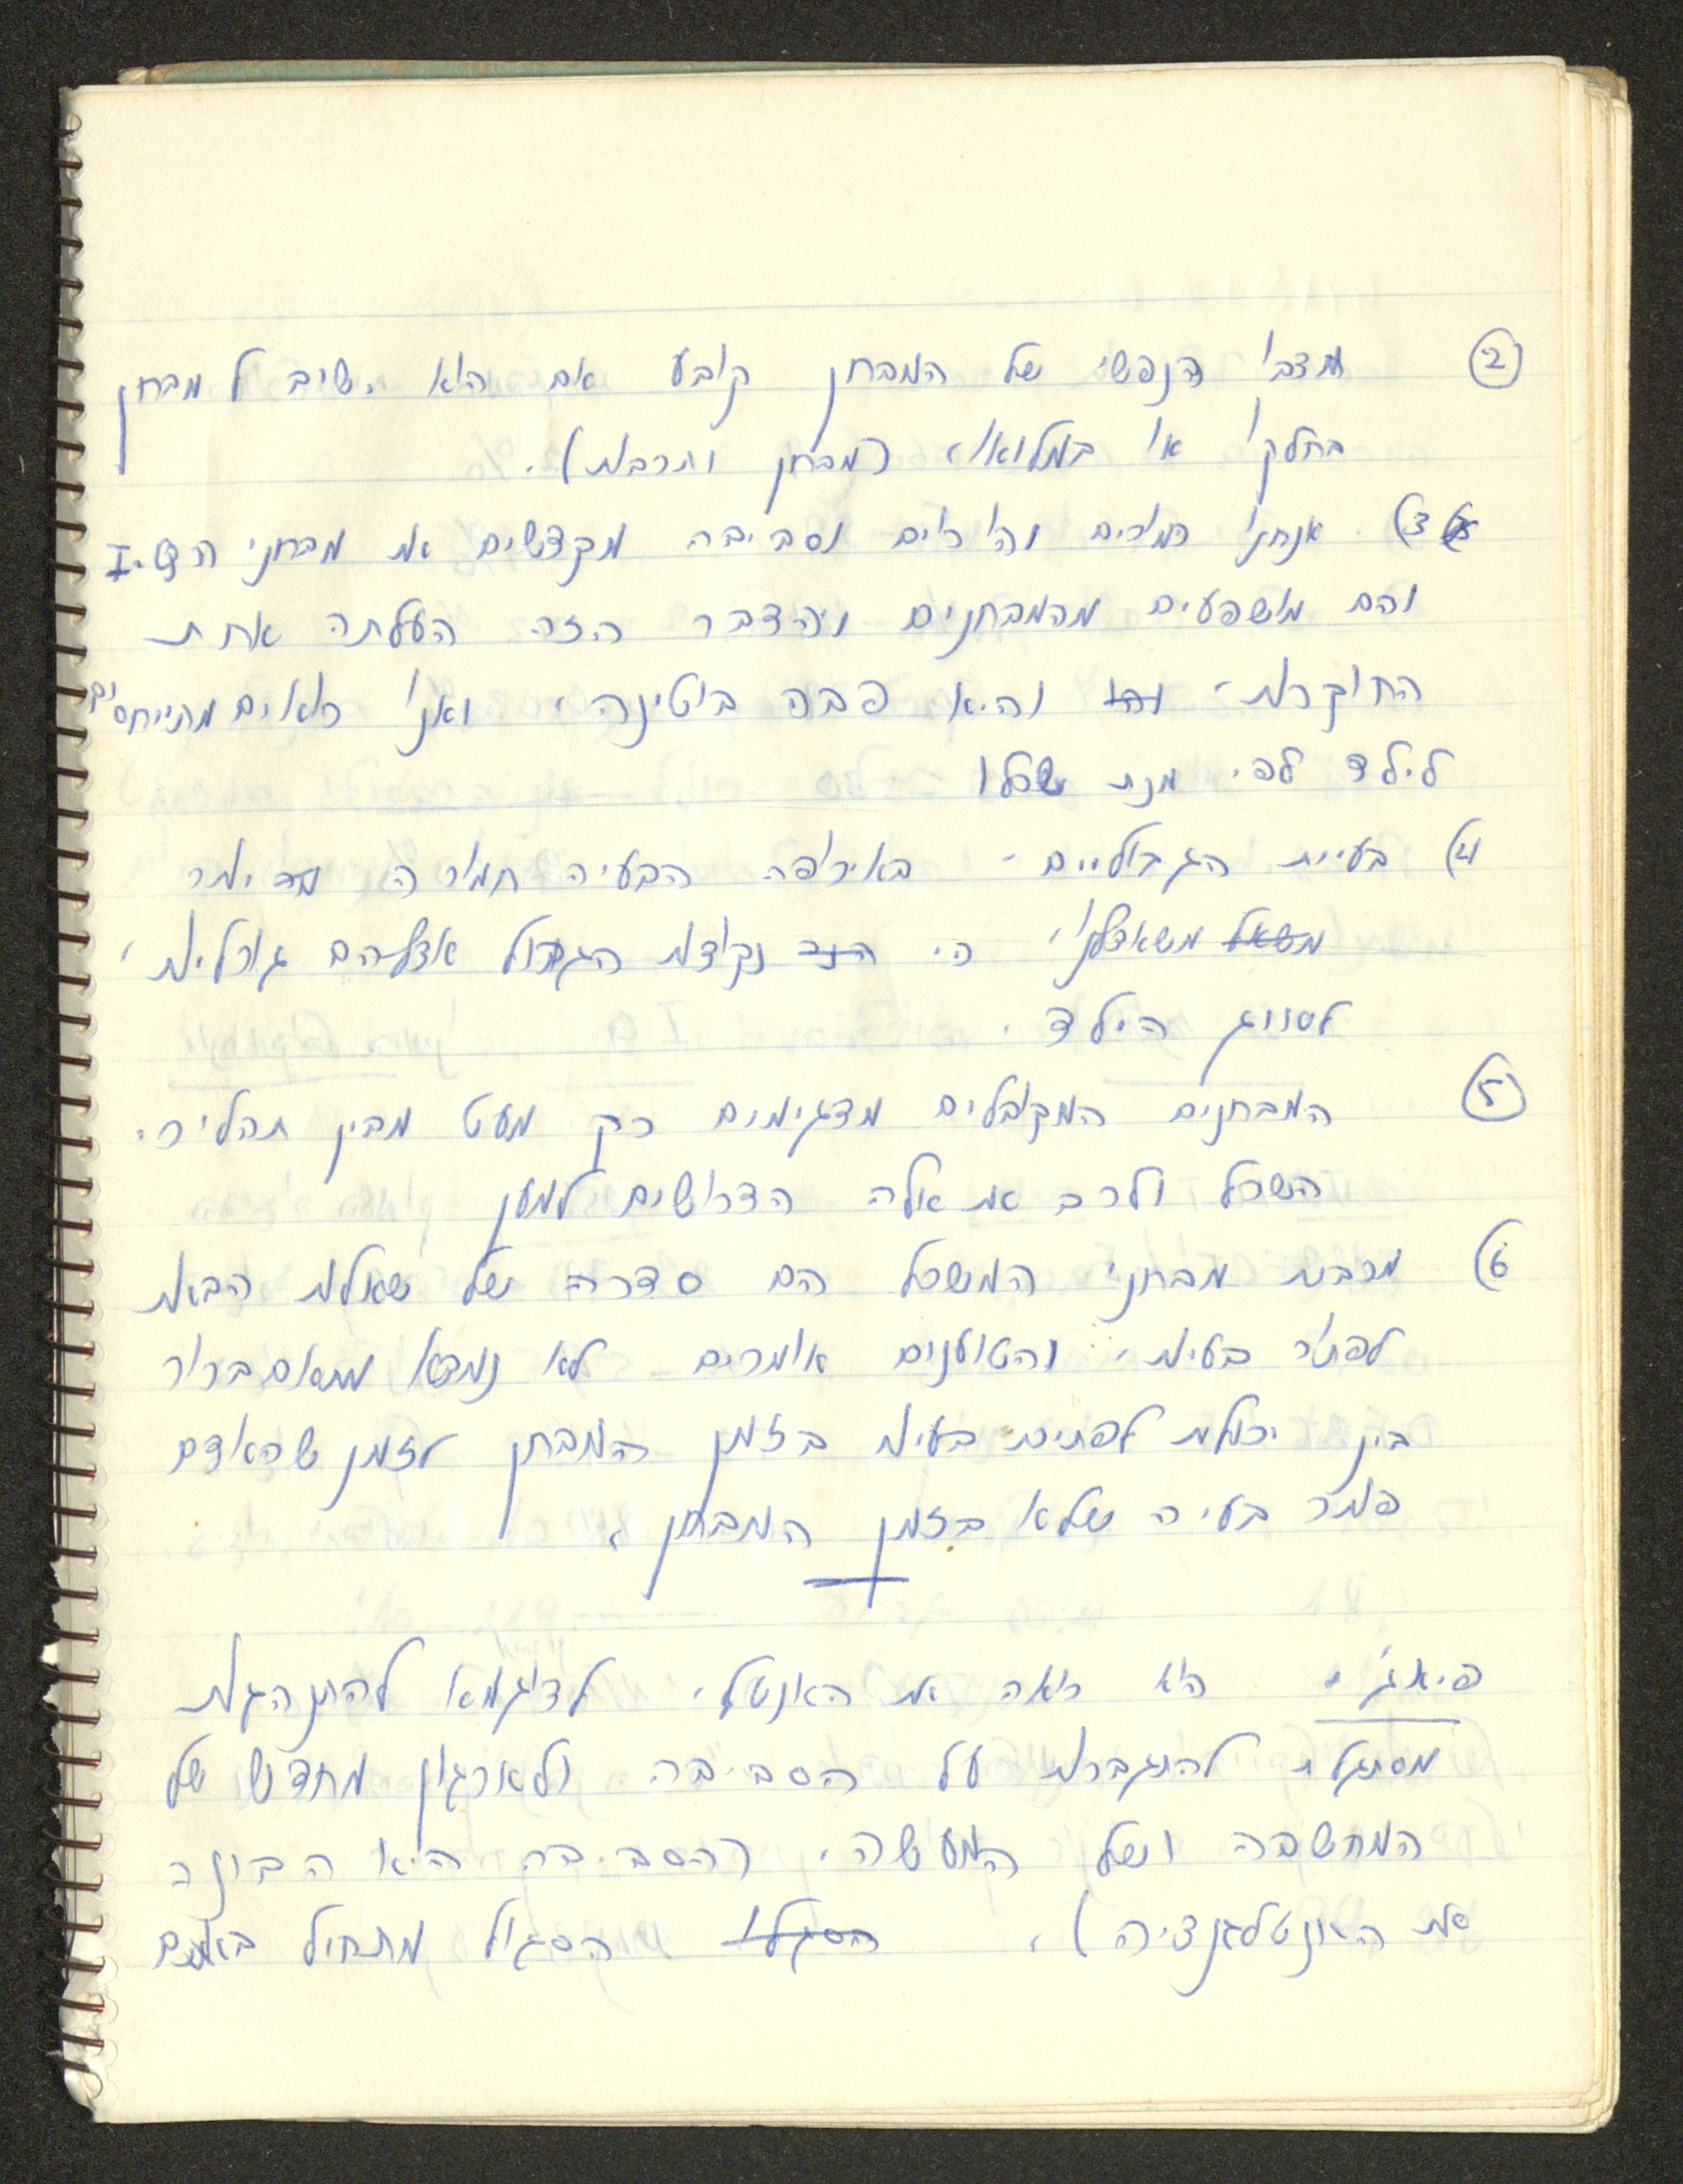 ② מצבו הנפשי של המבחן קובע אם הוא ישיב למבחן
בחלקו או במלואו, (מבחן ותרבות).
3) אנחנו המורים וההורים וסביבה מקדשים את מבחני ה
והם מושפעים מהמבחנים והדבר הזה העלתה אחת
החוקרות, והיא ואנו רואים מתייחסים
לילד לפי מנת שכלו
4) בעיית הגבוליים - באירופה הבעיה חמורה יותר
משאצלנו, כי נקודת הגבול אצלהם גורלית,
לסווג הילד.
⑤ המבחנים המקובלים מדגימים רק מעט מבין תהליכי
השכל ולרב את אלה הדרושים למען
6) מרבית מבחני המשכל הם סדרה של שאלות הבאות
לפתור בעיות, והטוענים אומרים לא נמצא מתאם ברור
בין יכולת לפתירת בעיות בזמן המבחן לזמן שהאדם
פותר בעיה שלא בזמן המבחן.
פיאג'י הוא רואה את האנטל. לדוגמא להתנהגות
מסתגלת להתגברות על הסביבה ולארגון מחדש של
המחשבה ושל המעשה. (הסביבה היא הבונה
את האינטלגנציה). הסגלו הסגול מתחיל באדם